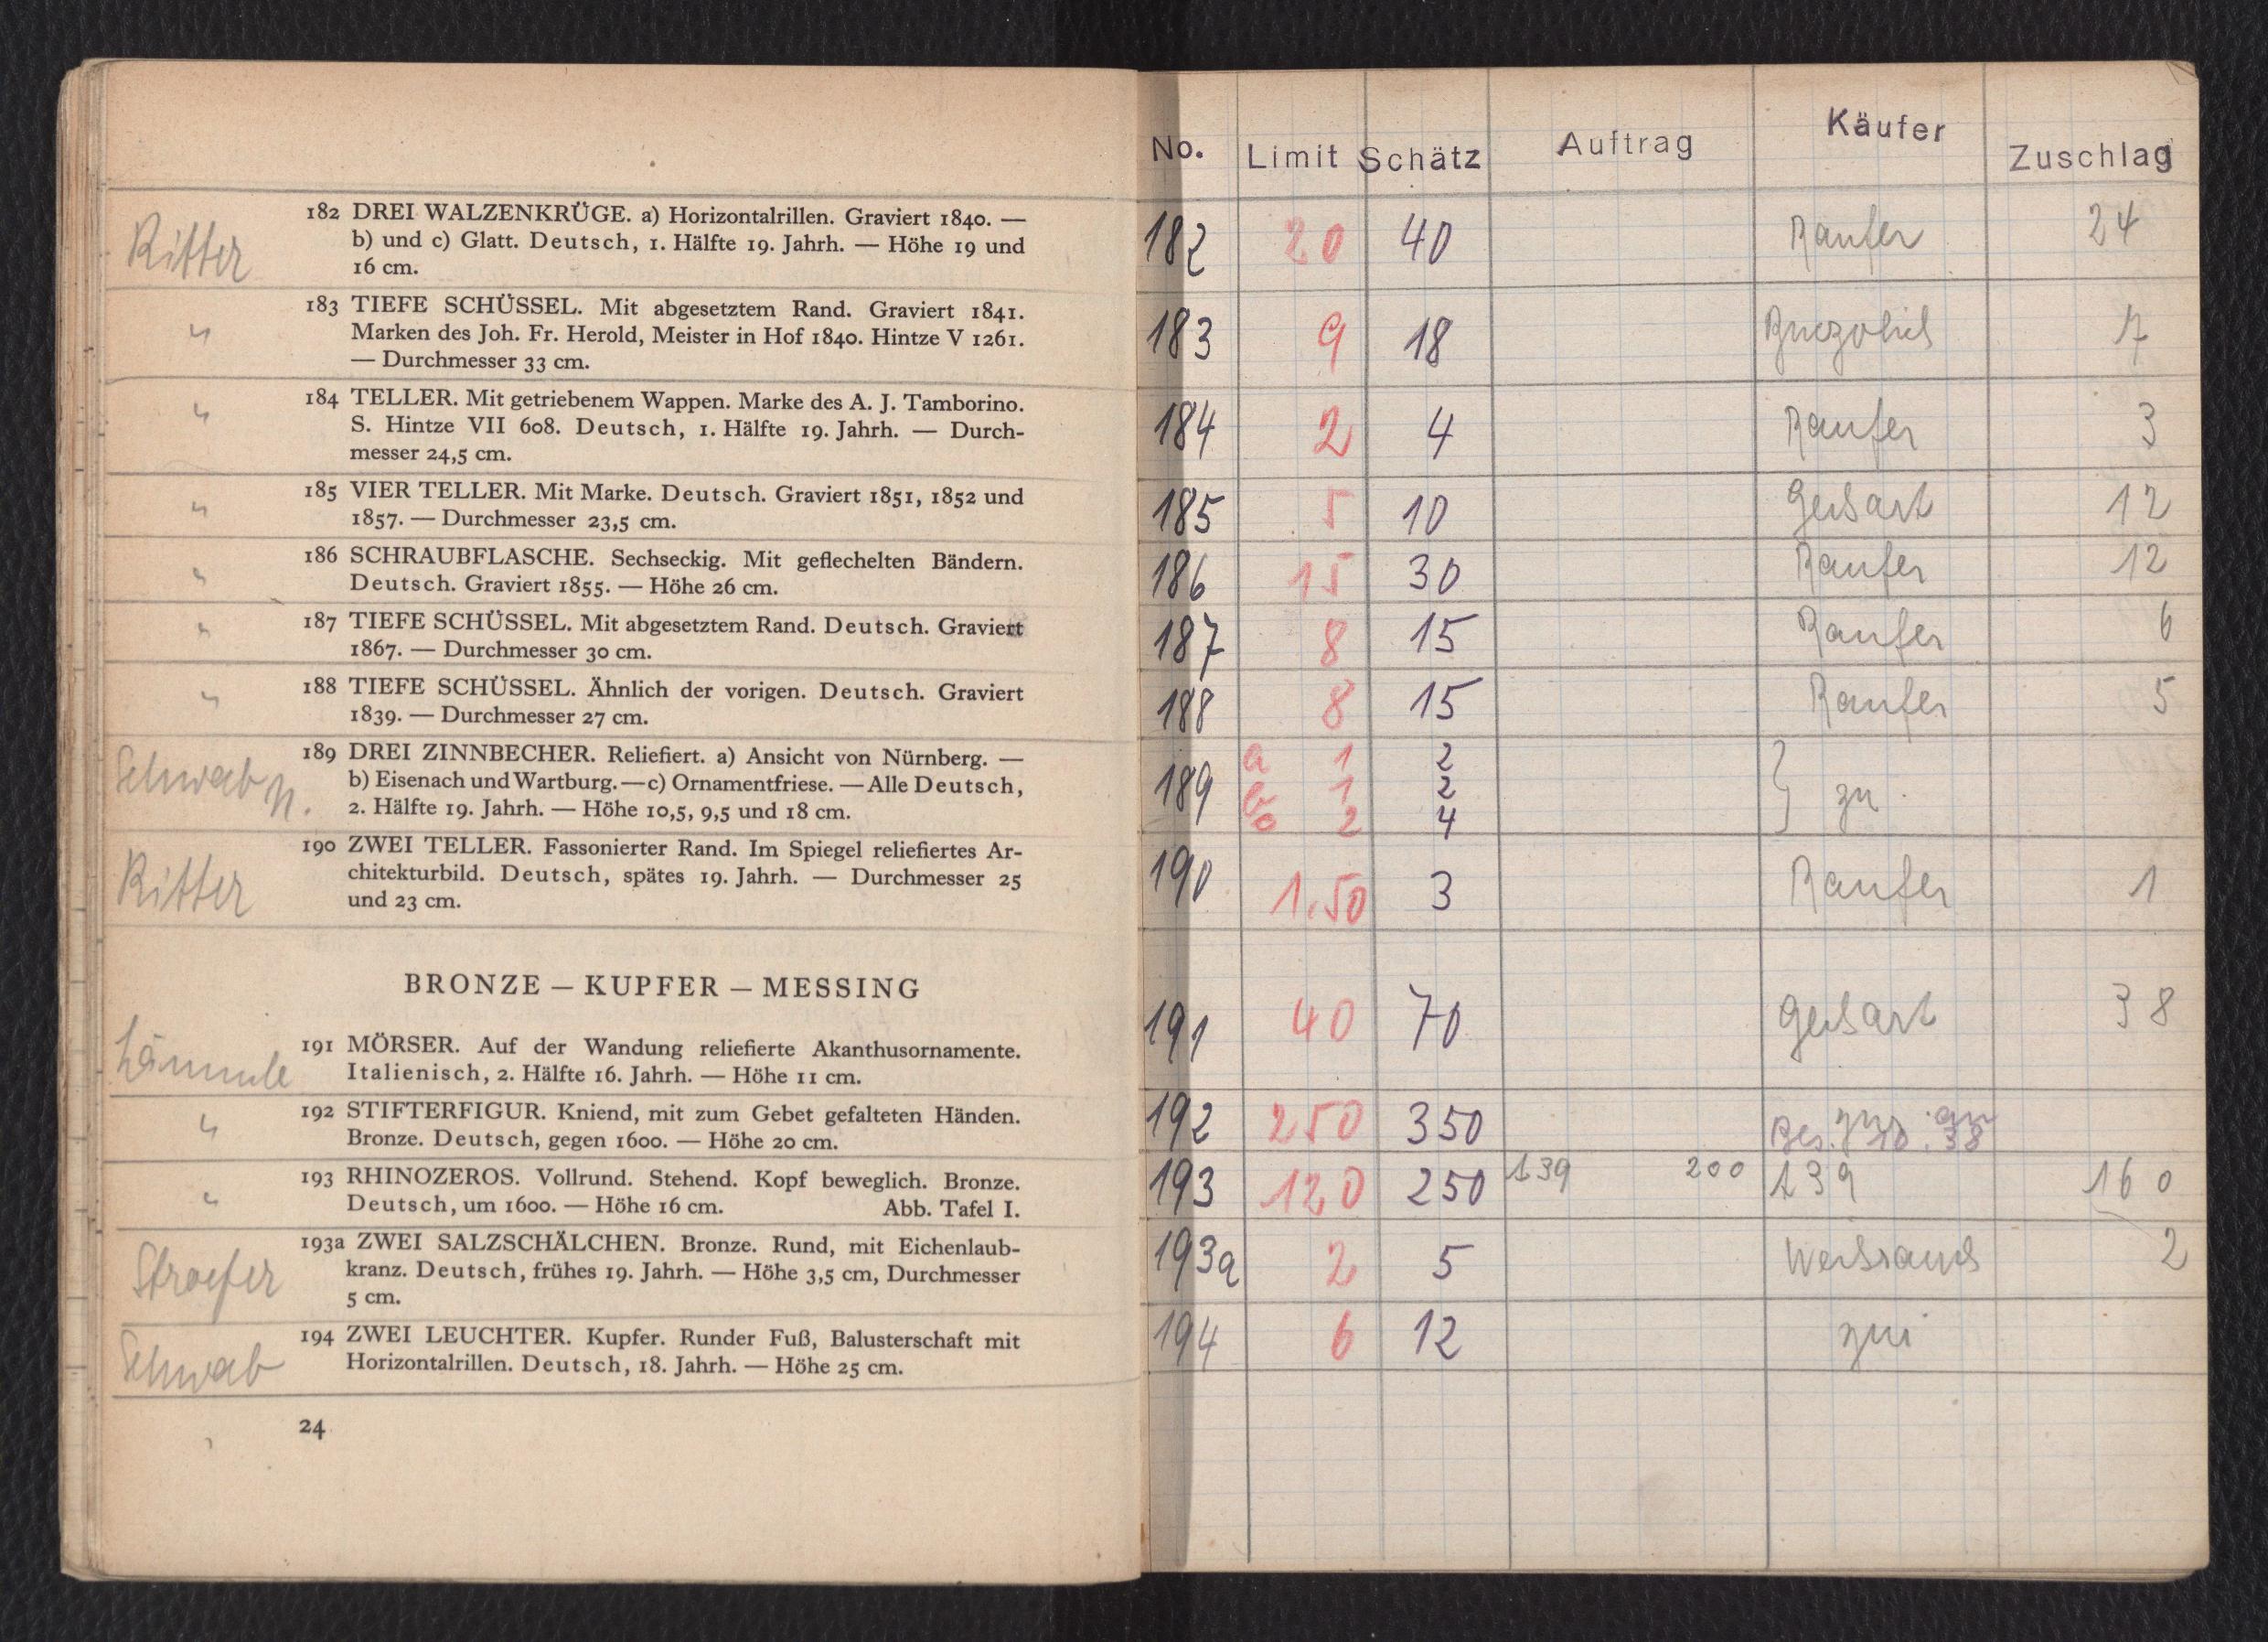 Ritter
182 DREI WALZENKRÜGE. a) Horizontalrillen. Graviert 1840. —
b) und c) Glatt. Deutsch, 1. Hälfte 19. Jahrh. — Höhe 19 und
16 cm.
"
183 TIEFE SCHÜSSEL. Mit abgesetztem Rand. Graviert 1841.
Marken des Joh. Fr. Herold, Meister in Hof 1840. Hintze V 1261.
— Durchmesser 33 cm.
"
184 TELLER. Mit getriebenem Wappen. Marke des A. J. Tamborino.
S. Hintze VII 608. Deutsch, 1. Hälfte 19. Jahrh. — Durch-
messer 24,5 cm.
"
185 VIER TELLER. Mit Marke. Deutsch. Graviert 1851, 1852 und
1857. — Durchmesser 23,5 cm.
"
186 SCHRAUBFLASCHE. Sechseckig. Mit geflechelten Bändern.
Deutsch. Graviert 1855. — Höhe 26 cm.
"
187 TIEFE SCHÜSSEL. Mit abgesetztem Rand. Deutsch. Graviert
1867. — Durchmesser 30 cm.
"
188 TIEFE SCHÜSSEL. Ähnlich der vorigen. Deutsch. Graviert
1839. — Durchmesser 27 cm.
Schwab N.
189 DREI ZINNBECHER. Reliefiert. a) Ansicht von Nürnberg. —
b) Eisenach und Wartburg. — c) Ornamentfriese. — Alle Deutsch,
2. Hälfte 19. Jahrh. — Höhe 10,5, 9,5 und 18 cm.
Ritter
190 ZWEI TELLER. Fassonierter Rand. Im Spiegel reliefiertes Ar-
chitekturbild. Deutsch, spätes 19. Jahrh. — Durchmesser 25
und 23 cm.
BRONZE — KUPFER — MESSING
Lämmle
191 MÖRSER. Auf der Wandung reliefierte Akanthusornamente.
Italienisch, 2. Hälfte 16. Jahrh. — Höhe 11 cm.
"
192 STIFTERFIGUR. Kniend, mit zum Gebet gefalteten Händen.
Bronze. Deutsch, gegen 1600. — Höhe 20 cm.
"
193 RHINOZEROS. Vollrund. Stehend. Kopf beweglich. Bronze.
Deutsch, um 1600. — Höhe 16 cm. Abb. Tafel I.
Stroefer
193a ZWEI SALZSCHÄLCHEN. Bronze. Rund, mit Eichenlaub-
kranz. Deutsch, frühes 19. Jahrh. — Höhe 3,5 cm, Durchmesser
5 cm.
Schwab
194 ZWEI LEUCHTER. Kupfer. Runder Fuß, Balusterschaft mit
Horizontalrillen. Deutsch, 18. Jahrh. — Höhe 25 cm.
24
No. Limit Schätz Auftrag Käufer Zuschlag
182 20 40 Ranfer 24
183 9 18 17
184 2 4 Ranfer 3
185 5 10 12
186 15 30 Ranfer 12
187 8 15 Ranfer 6
188 8 15 Ranfer 5
189 a 1 2
b 1 2
c 2 4
190 1.50 3 Ranfer 1
191 40 70 38
192 250 350
193 120 250 139 200 139 160
193a 2 5 2
194 6 12